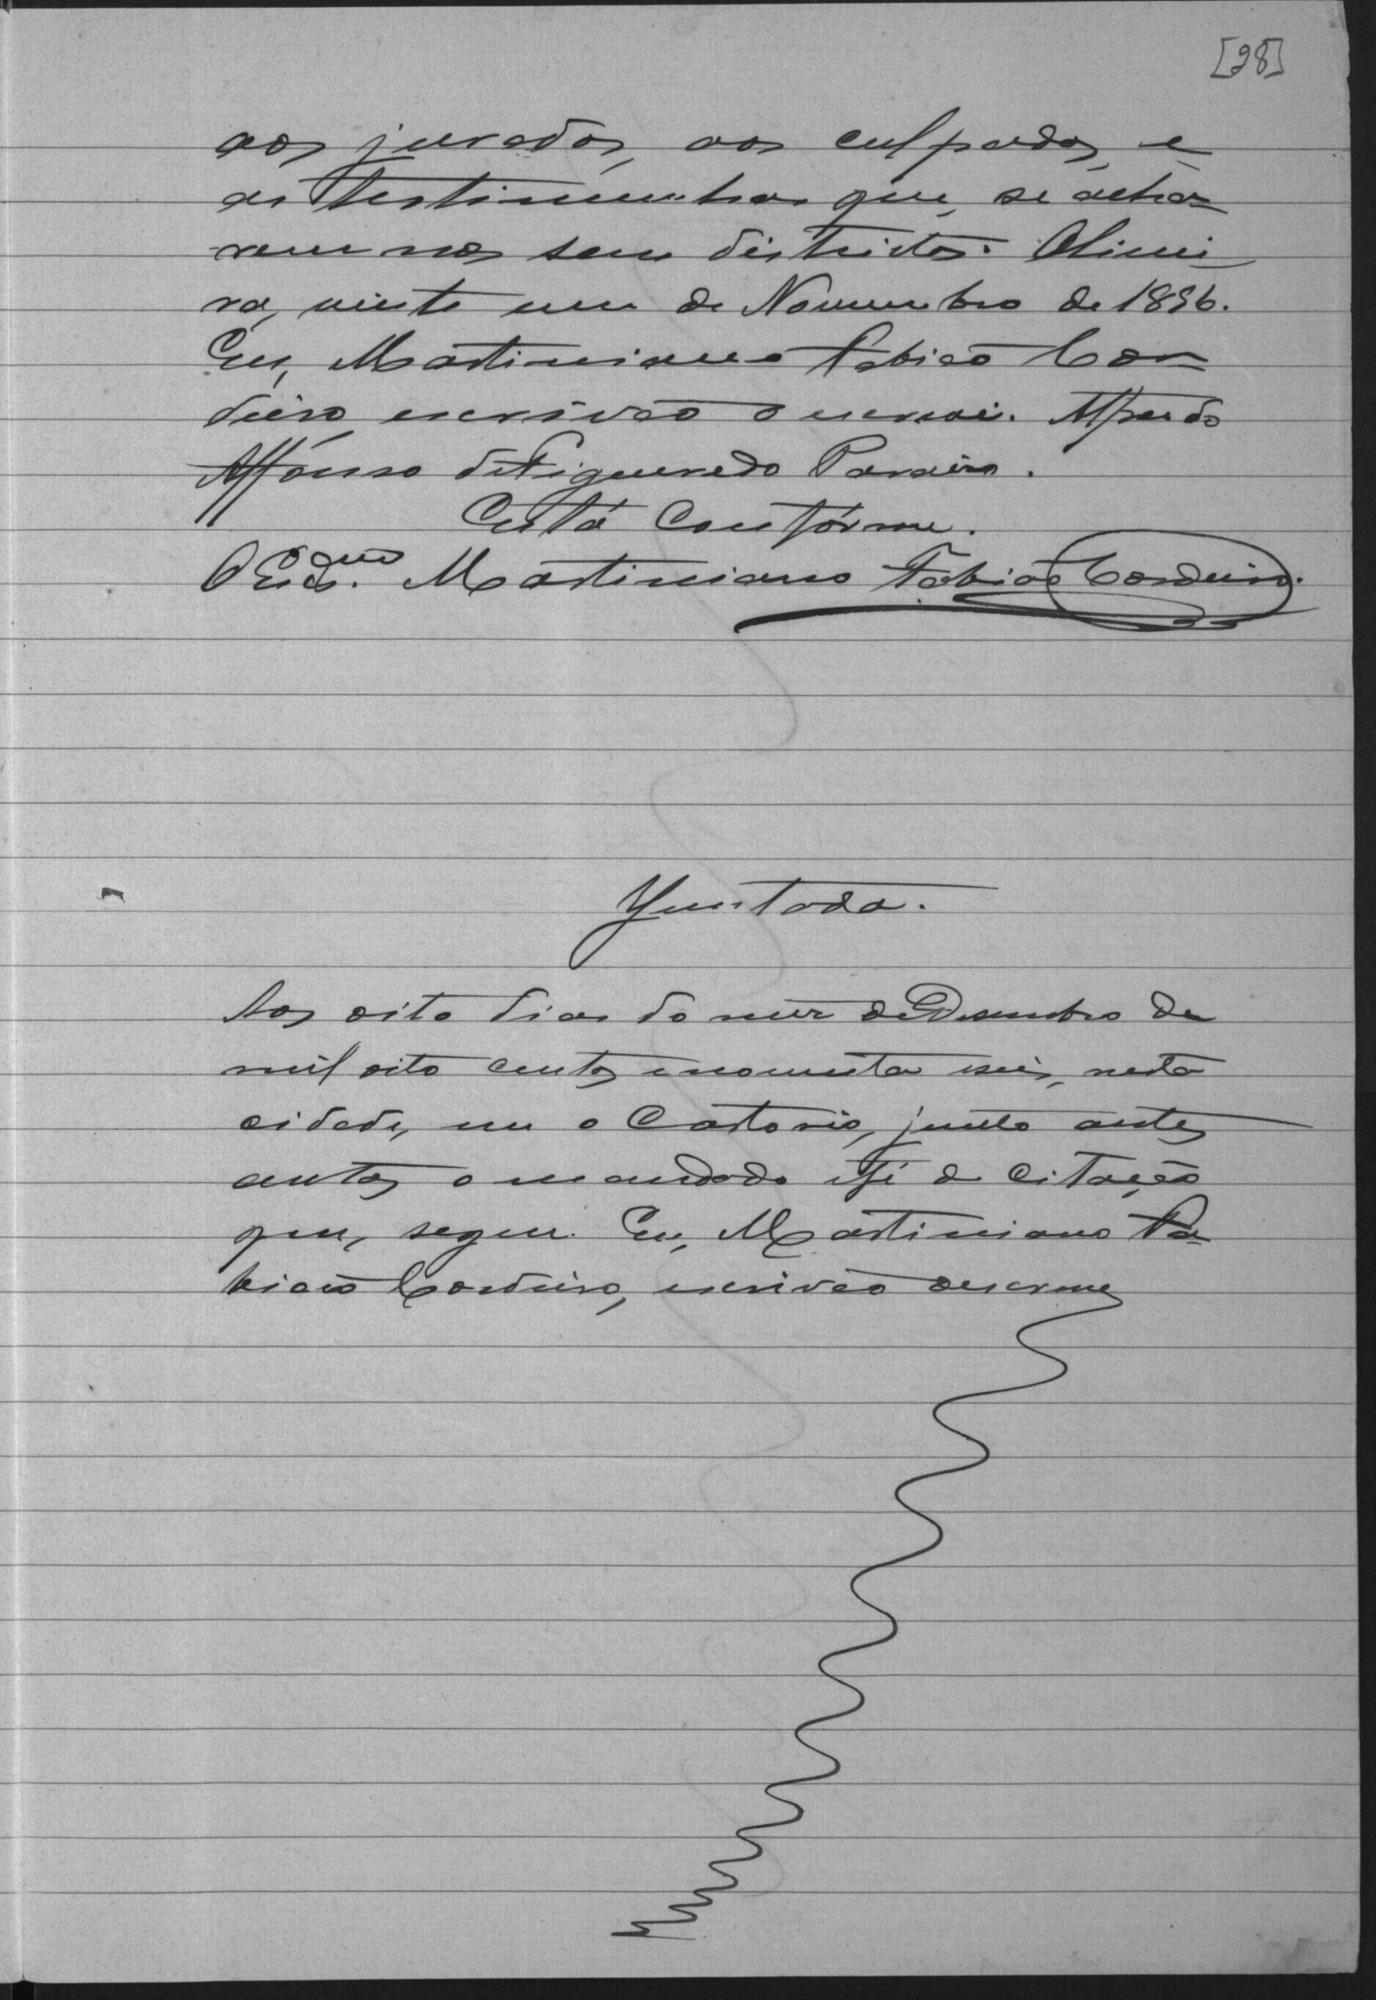 [28]
aos jurados, aos culpados, e
as testimunhas que, se acha-
rem nos seus districtos. Olimei-
ra, vinte um de Novembro de 1896.
Eu, Martiniano Fabião Cor-
deiro, escrivão o escrevi. Alfredo
Affonso de Figueredo Paraiso.
Está Confórme.
O Escr.ivão Martiniano Fabião Cordeiro.
Juntada.
Aos oito dias do mez de Desembro de
mil oito centos e noventa e seis, nesta
cidade, em o Cartorio, junto a estes
autos o mandado e fé de Citação
que, segue. Eu, Martiniano Fa-
bião Cordeiro, escrivão o escrevi